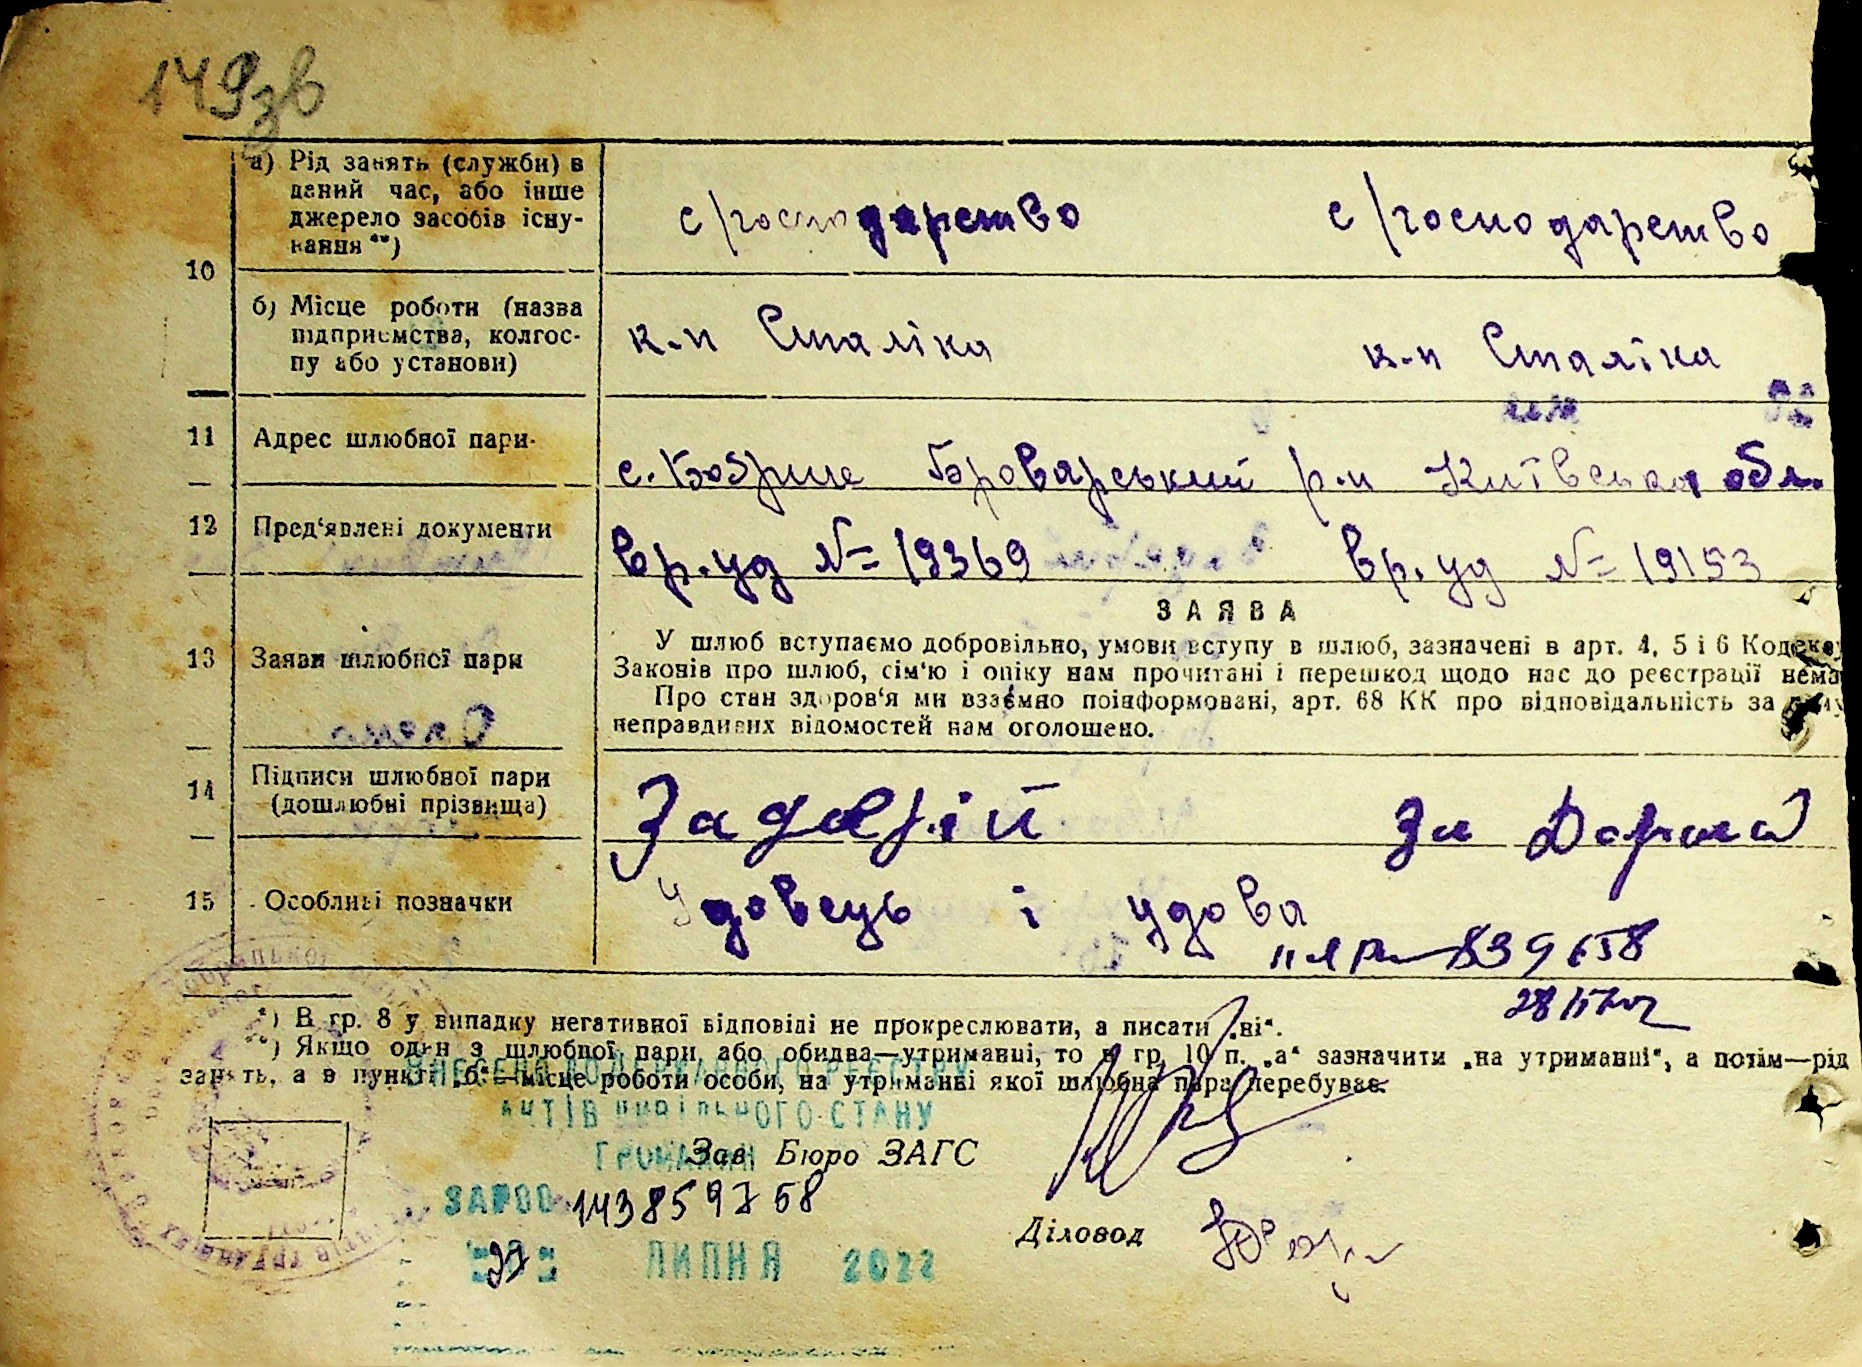 149зв
а) Рід занять (служби) в
даний час, або інше
джерело засобів існу-
вання **)
с/господарство с/господарство
10
б) Місце роботи (назва
підприємства, колгос-
пу або установи)
к-п Сталіна к-п Сталіна
11 Адрес шлюбної пари
с. Бобрик Броварський р-н Київська обл.
12 Пред'явлені документи
вр. уд № 19369 вр. уд № 19153
ЗАЯВА
13 Заяви шлюбної пари
У шлюб вступаємо добровільно, умови вступу в шлюб, зазначені в арт. 4, 5 і 6 Кодексу
Законів про шлюб, сім'ю і опіку нам прочитані і перешкод щодо нас до реєстрації нема
Про стан здоров'я ми взаємно поінформовані, арт. 68 КК про відповідальність за
неправдивих відомостей нам оголошено.
14 Підписи шлюбної пари
(дошлюбні прізвища)
15 Особливі позначки
Удовець і удова
839658
*) В гр. 8 у випадку негативної відповіді не прокреслювати, а писати „ні“.
**) Якщо один з шлюбної пари або обидва—утриманці, то в гр. 10 п. „а“ зазначити „на утриманні“, а потім—рід
занять, а в пункті „б“—місце роботи особи, на утриманні якої шлюбна пара перебуває.
ВНЕСЕНО ДО ДЕРЖАВНОГО РЕЄСТРУ
АКТІВ ЦИВІЛЬНОГО СТАНУ
ГРОМАДЯН
Зав. Бюро ЗАГС
143859768
Діловод
27 ЛИПНЯ 2022